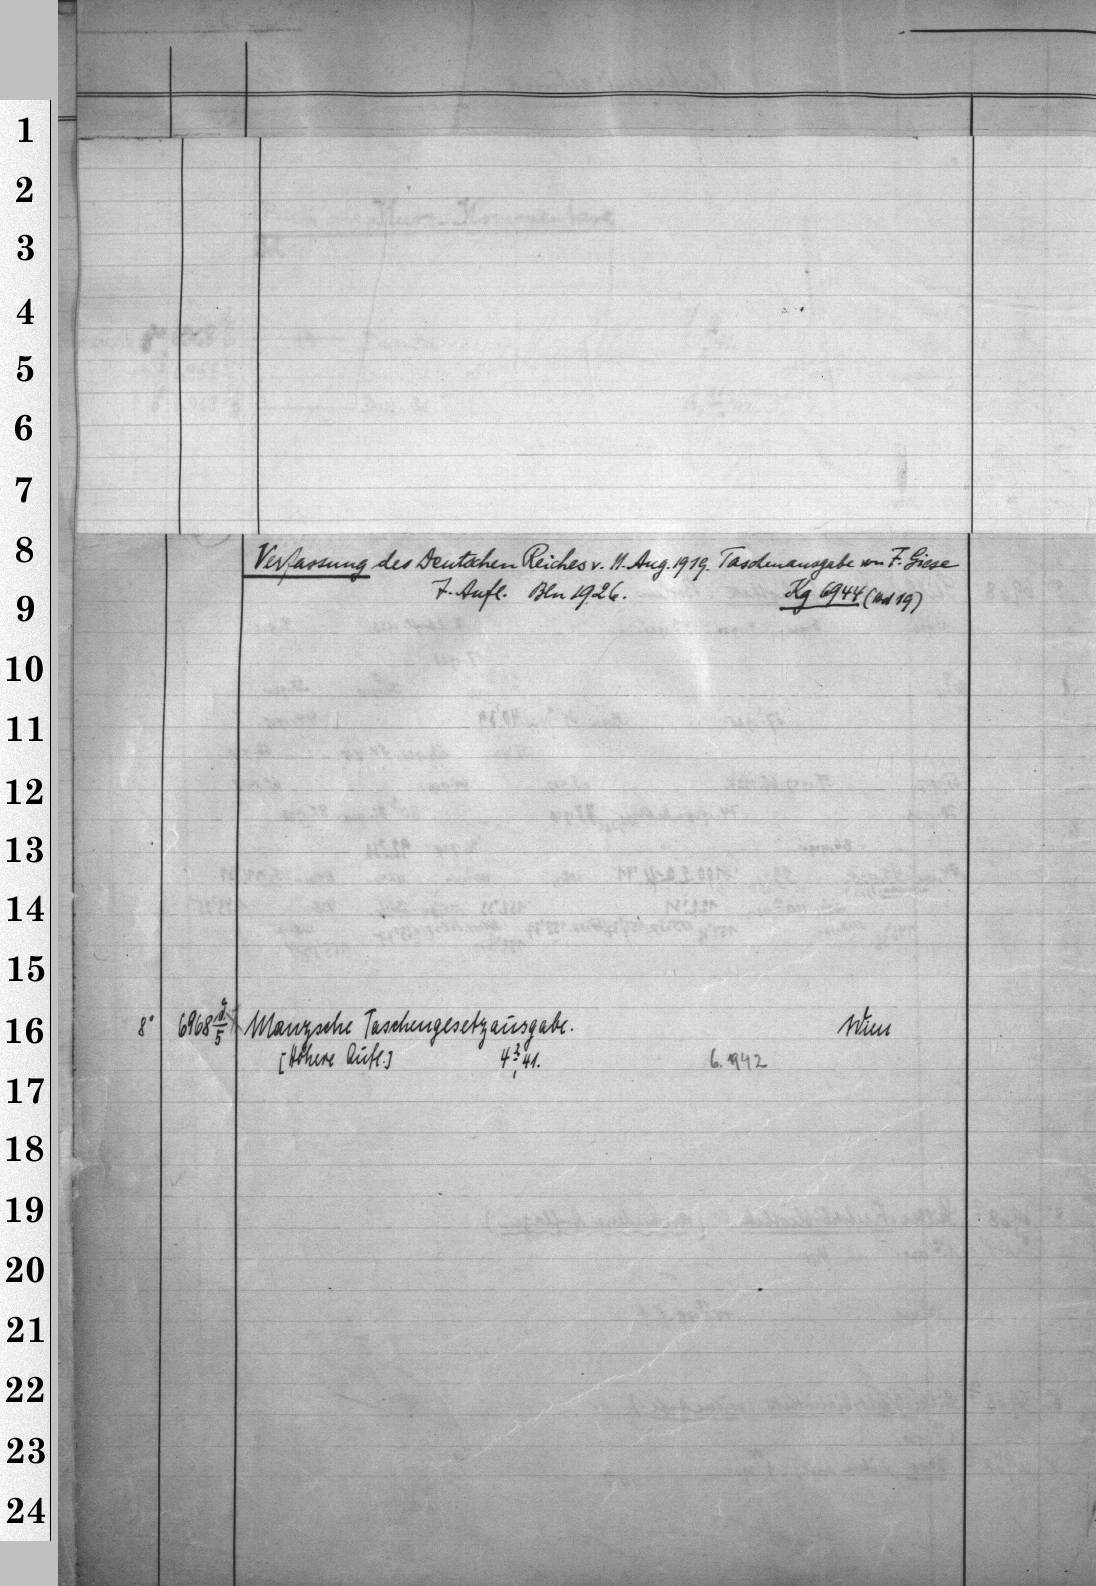 1
2
3
4
5
6
7
8
Verfassung des Deutschen Reiches v. 11. Aug. 1919. Taschenausgabe von F. Giese
9
7. Aufl. Bln 1926. Kg 6944 (19)
10
11
12
13
14
15
16
8° 6968 g/5 Manzsche Taschengesetzausgabe. Wien
[Höhere Aufl.] 4 3 41. 6. 942
17
18
19
20
21
22
23
24